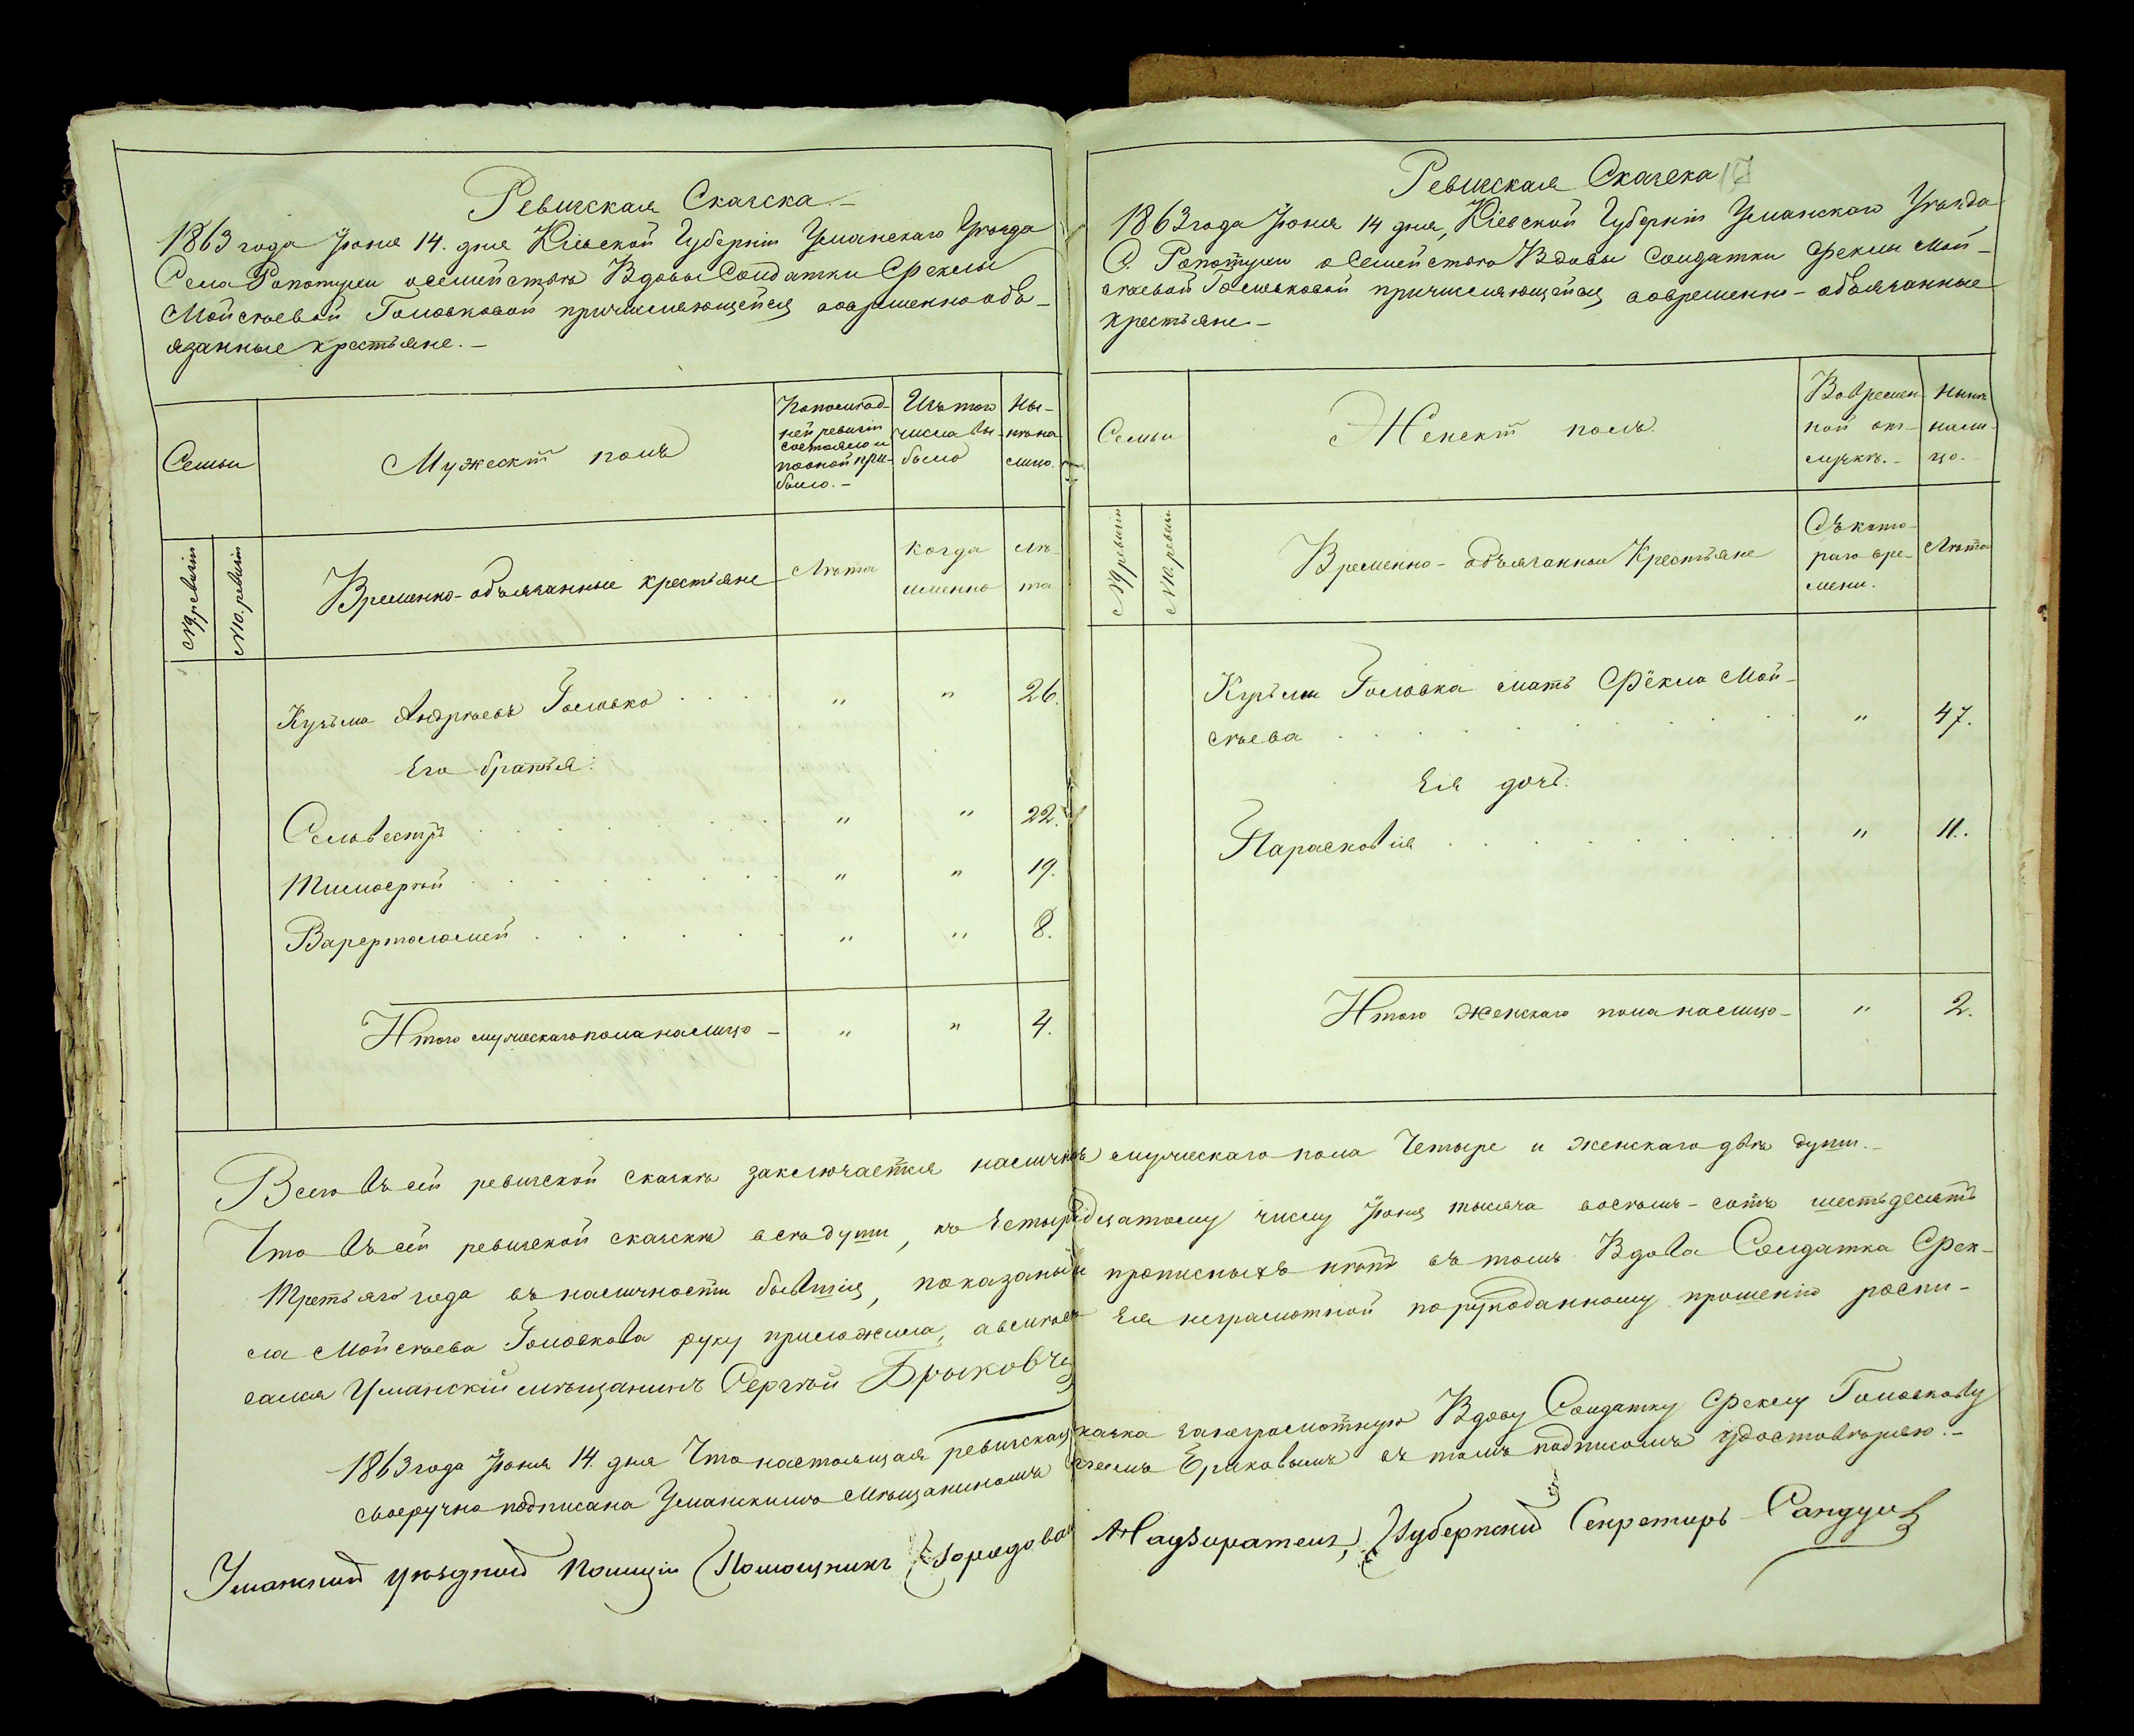 Ревизская Сказка. –
1863 года Іюня 14. дня Кіевской Губерніи Уманскаго Уѣзда
Села Ропотухи о семействѣ Вдовы Солдатки Феклы
Мойсѣевой Головковой причисляющейся во временно обя-
язанные крестьяне. –
Семьи
Мужескій полъ
По послѣд-
ней ревизіи
состояло и
послѣ при-
было. –
Изъ того
числа вы-
было
Ны-
нѣ на
лицо.
№ 9. ревизіи
№ 10. ревизіи
Временно-обязанные крестьяне
Лѣта
Когда
именно
Лѣ-
та
Кузьма Андрѣевъ Головко . . . . " " 26.
Его братья:
Сельвестръ . . . . . . . " " 22.
Тимофѣй . . . . . . . " " 19.
Варфтоломей . . . . . . " " 8.
Итого мужескаго пола налицо – " " 4.
Ревизская Сказка
1863 года Іюня 14 дня, Кіевской Губерніи Уманскаго Уѣзда
С. Ропотухи о Семействѣ Вдовы Солдатки Феклы Мой-
сѣевой Головковой причисляющейся во временно-обязанные
крестьяне –
Семьи
Женскій полъ.
Во времен-
ной от-
лучкѣ. –
Нынѣ
нали-
цо. –
№ 9. ревизіи
№ 10. ревизіи
Временно-обязанные Крестьяне
Съ кото-
раго вре-
мени.
Лѣта
Кузьмы Головка мать Фёкла Мой-
сѣева . . . . . . . " 47.
Ея дочь:
Парасковія . . . . . . . " 11.
Итого женскаго пола налицо – " 2.
Всего въ сей ревизской сказкѣ заключается наличныхъ мужескаго пола Четыре и женскаго двѣ души. –
Что въ сей ревизской сказкѣ всѣ души, къ Четырнадцатому числу Іюня тысяча восемь-сотъ шестьдесятъ
третьяго года въ наличности бывшія, показаны и прописныхъ нѣтъ въ томъ Вдова Солдатка Фек-
ла Мойсѣева Головкова руку приложила, а вмѣсто ея неграмотной по рукоданному прошенію роспи-
сался Уманскій мѣщанинъ Сергѣй
1863 года Іюня 14. дня Что настоящая ревизская сказка за неграмотную Вдову Солдатку Феклу Головкову
своеручно подписана Уманскимъ Мѣщаниномъ въ томъ подписомъ удостовѣряю. –
Уманской уѣздной Полиціи Помощникъ Городоваго Надзирателя, Губернскій Секретарь